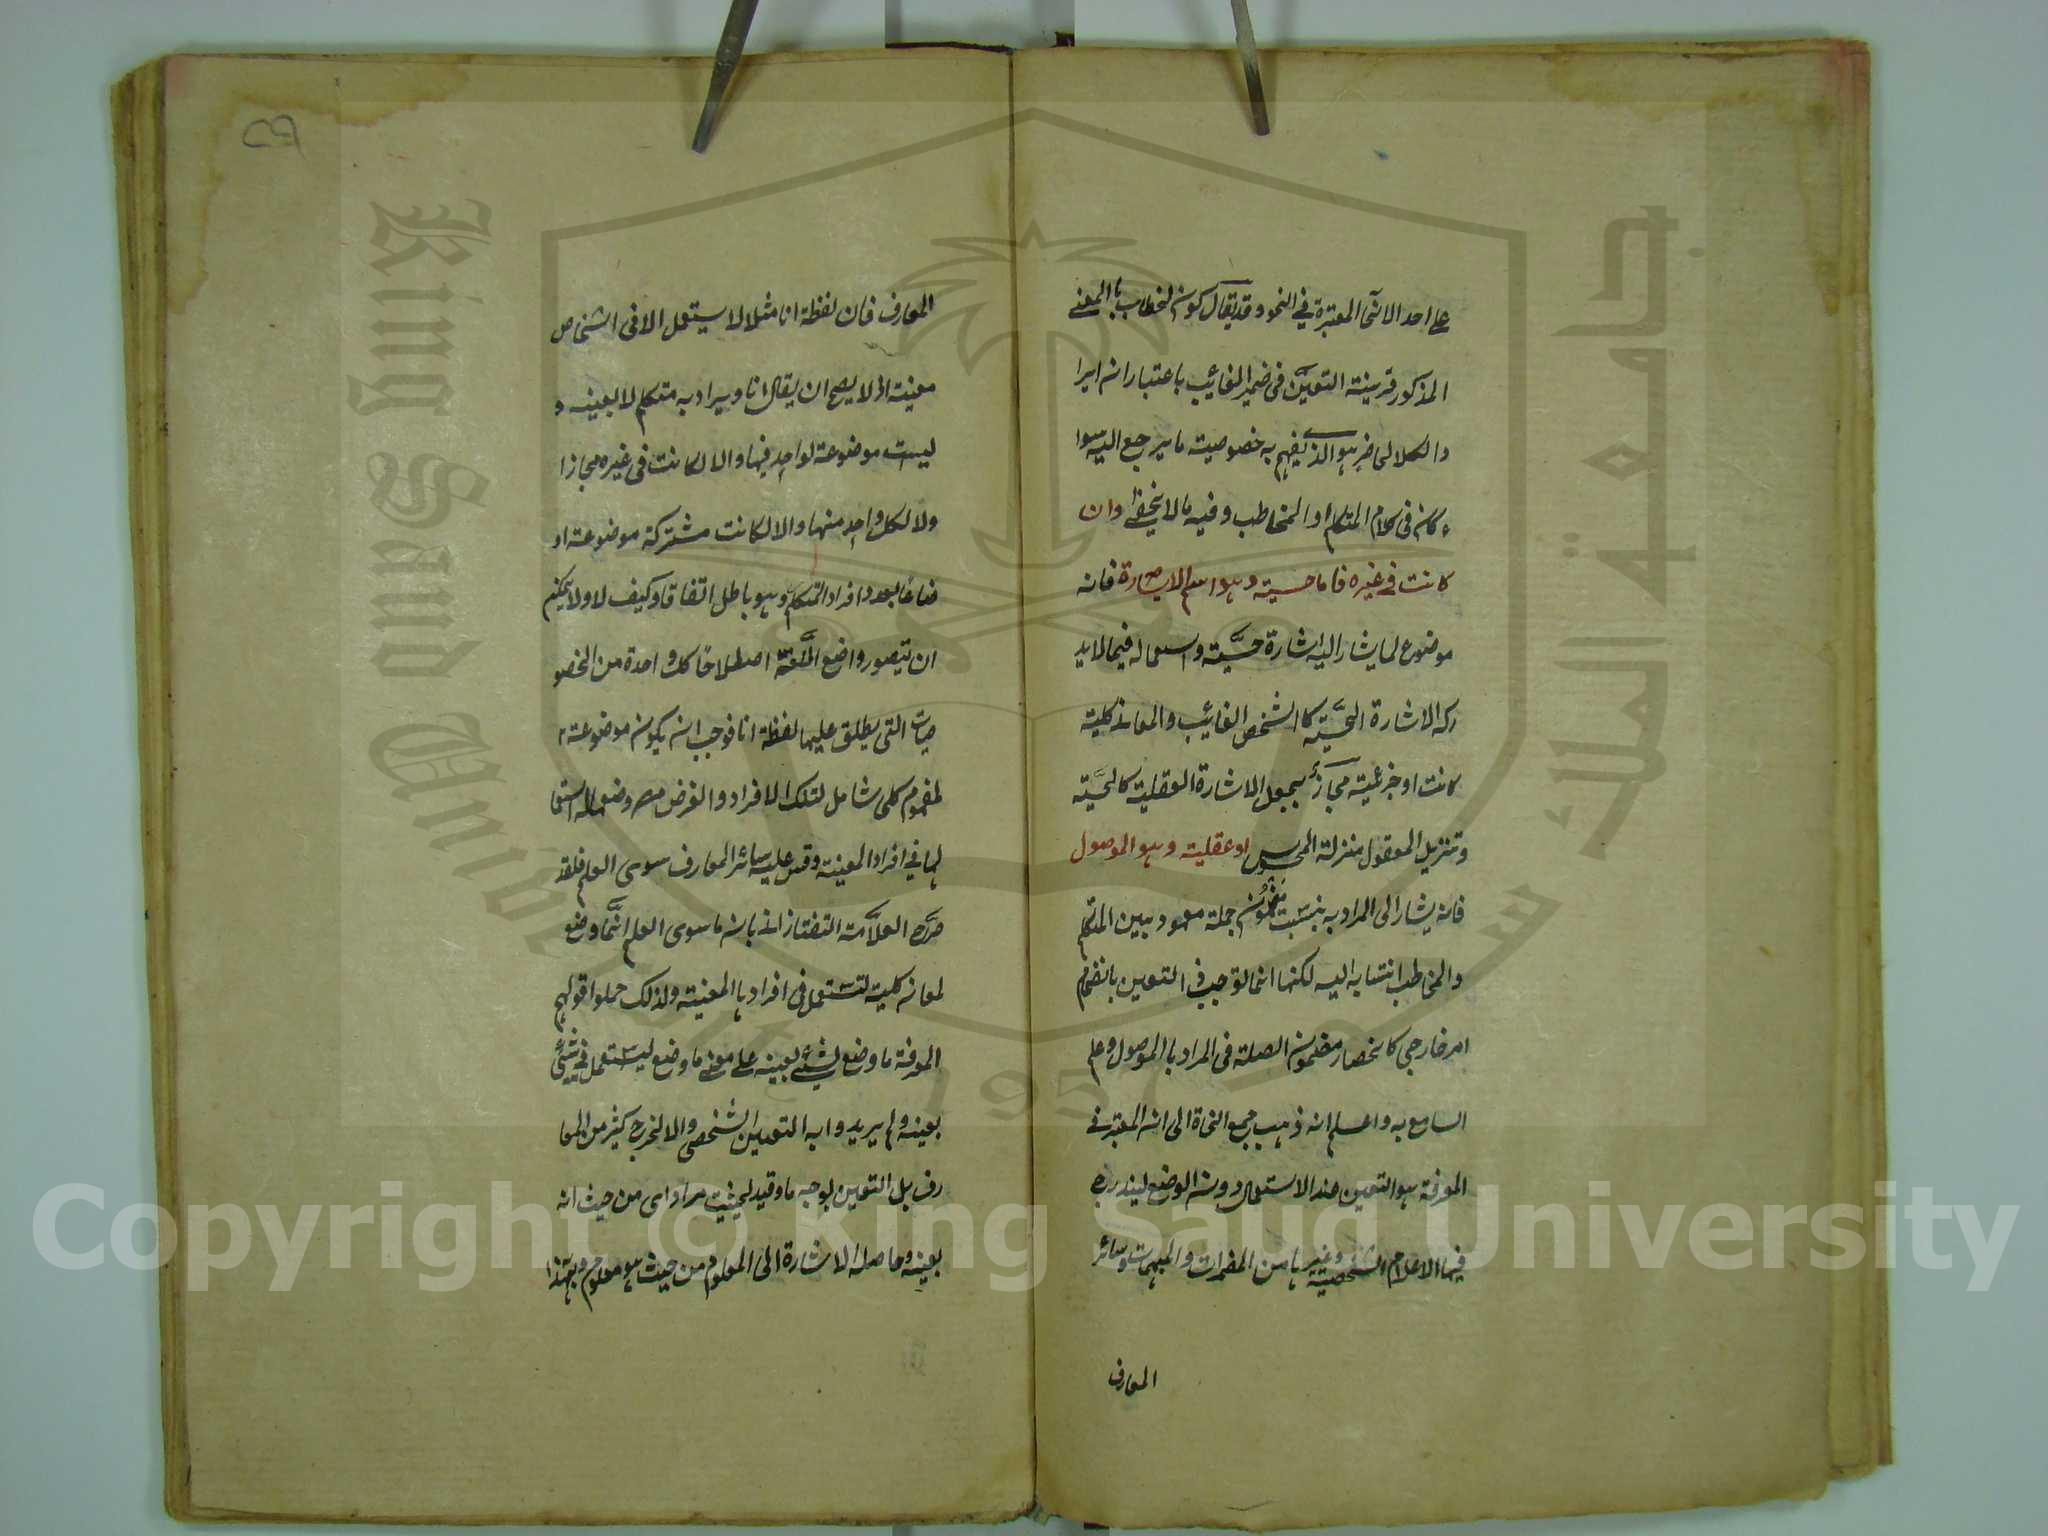 على احد الانحا المعتبرة في النحو وقد يقال كون الخطاب بالمعنى
المذكور قرينة التعين فى ضمير الغائب باعتبار انه ايرا
د الكلام لحاضر هو الذى يفهم به خصوصيت ما يرجع اليه سوا
ء كان فى كلام المتكلم او المخاطب وفيه ما لا يخفى وان
كانت في غيره فاما حسية وهو اسم الاشارة فانه
موضوع لما يشار اليه اشارة حسّية واستعماله فيما لا يد
ركه الاشارة الحسّية كالشخص الغائب والمعانى كلية
كانت او جزئية مجازٌ بجعل الاشارة العقلية كالحسّية
وتنزيل المعقول منزلة المحسوس او عقلية وهو الموصول
فانه يشار الى المراد به بنسبت مضمون جملة معهود بين المتكلم
والمخاطب انتسابه اليه لكنها انما توجب في التعين بانضمام
امر خارجي كانحصار مضمون الصلة فى المراد بالموصول وعلم
السامع به واعلم انه ذهب جمع النحاة الى ان المعتبر فى
المعرفة هو التعين عند الاستعمال دون الوضع ليندرج
فيها الاعلام الشخصية وغيرها من المضمرات والمبهمات وسائر
المعارف
٢٩
المعارف فان لفظة انا مثلا لا يستعمل الا فى اشخاص
معينة اذ لا يصح ان يقال انا ويراد به متكلم لا بعينه و
ليست موضوعة لواحد فيها والا لكانت فى غيره مجازا
ولا لكل واحد منها والا لكانت مشتركة موضوعة او
ضاعًا بعدد افراد المتكلم وهو باطل اتفاقا وكيف لا ولا يمكنهم
ان يتصور واضع اللّغة اصطلاحًا كل واحدة من الخصو
صيات التى يطلق عليها لفظة انا فوجب ان يكون موضوعة
لمفهوم كلى شامل لتلك الافراد والغرض من وضعها له استعما
لها في افراد المعينة وقس عليه سائر المعارف سوى العلم فلقد
صرّح العلاّمة التفتازانى بان ما سوى العلم انّما وضع
لمعان كلية لتستعمل فى افرادها المعينة ولذلك حملوا قولهم
المعرفة ما وضع لشئ بعينه على معنى ما وضع ليستعمل في شئ
بعينه ولم يريدوا به التعين الشخصى والا لخرج كثير من المعا
رف بل التعين لوجه ما وقيد لحيثيت مراد اى من حيث انه
بعينه وحاصله الاشارة الى المعلوم من حيث هو معلوم وبهذا
جامعة الملك سعود
King Saud University
1957
Copyright © King Saud University